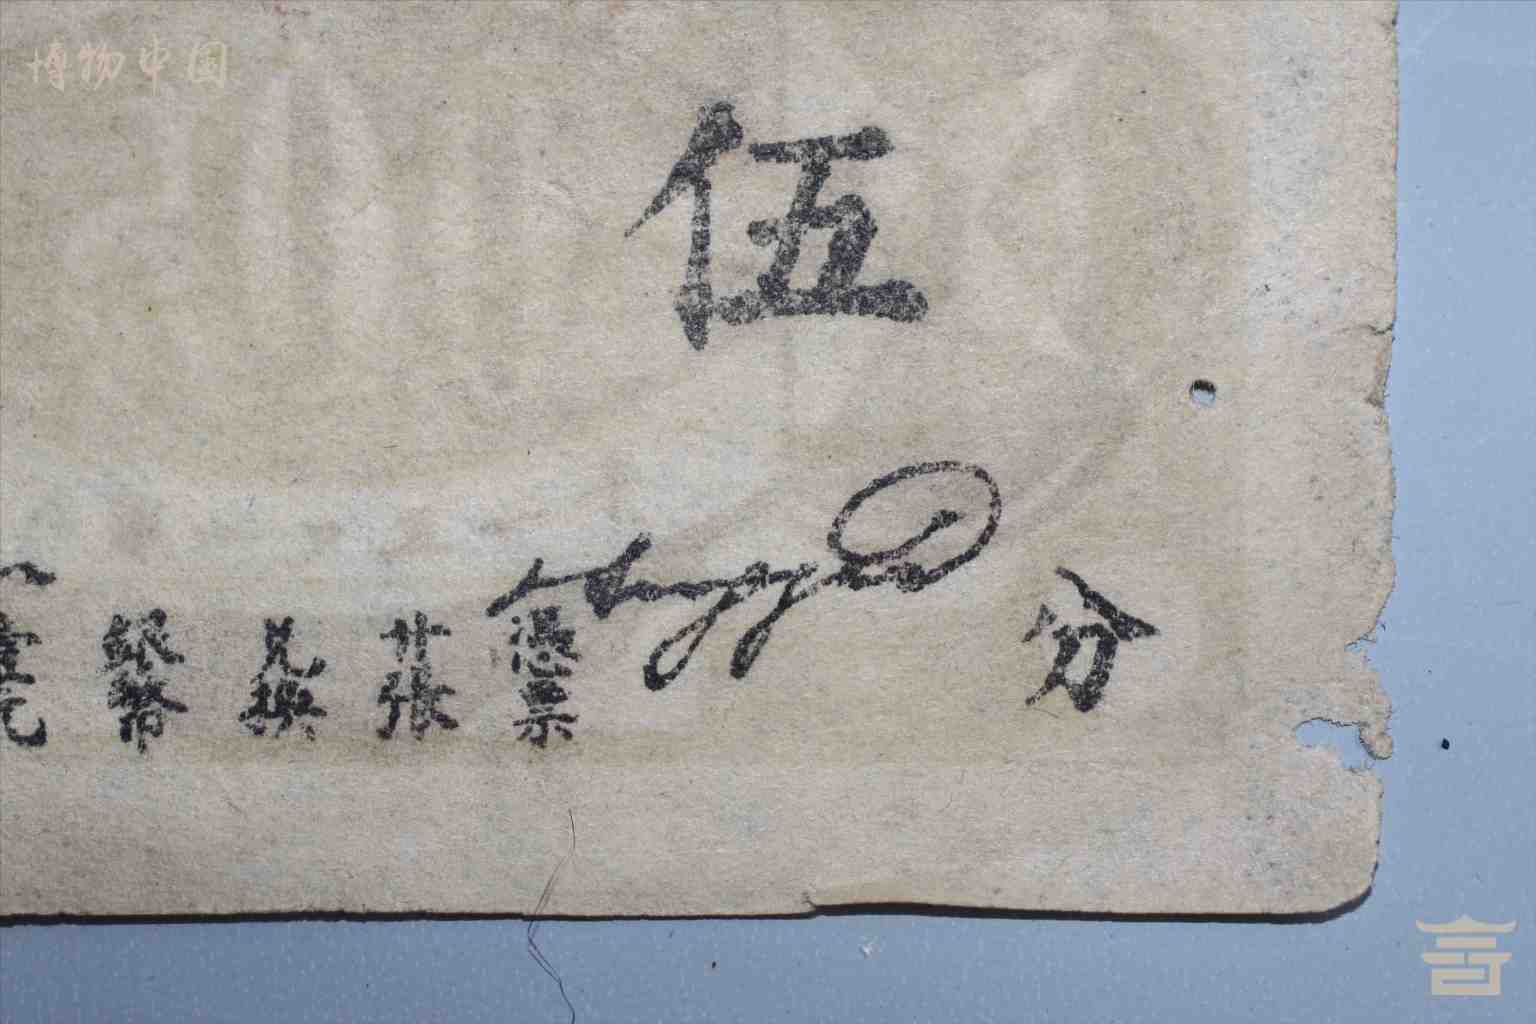 博物中国
伍
分
憑票
廿張
兑換
銀幣
壹元